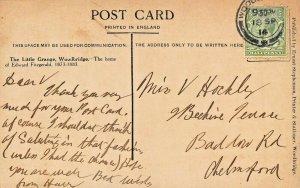 POST CARD
PRINTED IN ENGLAND
THIS SPACE MAY BE USED FOR COMMUNICATION.
THE ADDRESS ONLY TO BE WRITTEN HERE.
The Little Grange, Woodbridge. The home
of Edward Fitzgerald. 1873-1883.
Dear V
Thank you very
much for your Post Card.
of course I shouldn't think
of Saluting in that fashion
(unless I had the chance) Hope
you are well Best wishes
from
Miss V Hockley
9 Beehive Terrace
Baddow Rd
Chelmsford
9 30 PM
18 SP
16